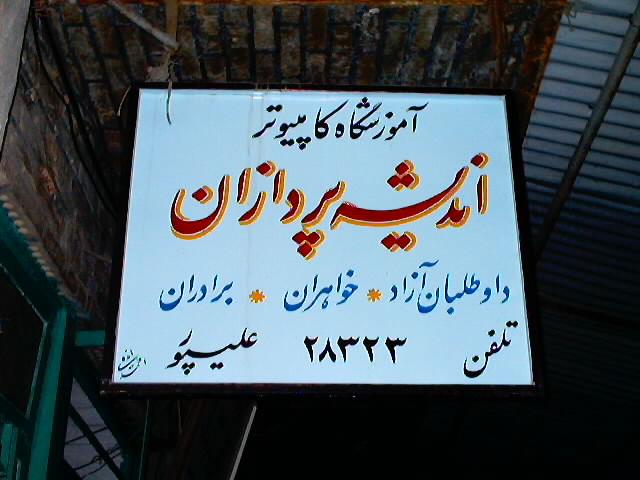 آموزشگاه کامپیوتر
اندیشه پردازان
داوطلبان آزاد * خواهران * برادران
تلفن ۲۸۳۲۳ علیپور